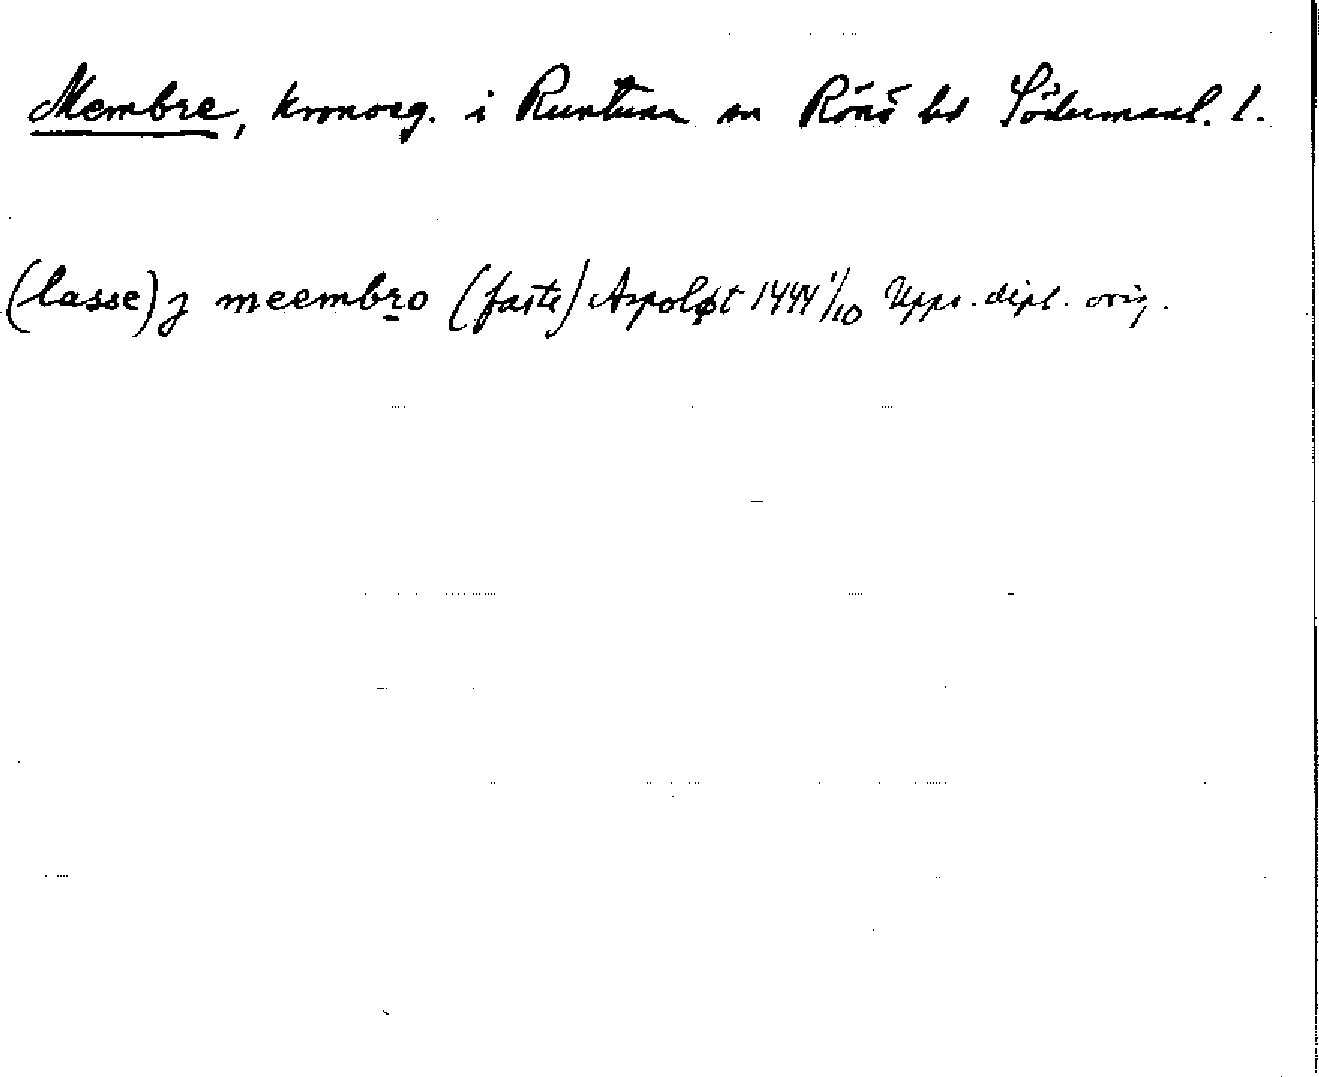 Membre, kronoeg. i Runtuna sn Rönö hd Södermanl. l.
(lasse) j meembro (faste) Aspoløt 1444 1/10 Upps. dipl. orig.